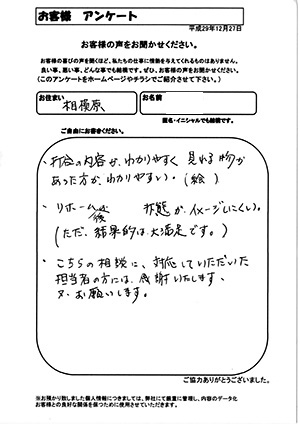 お客様 アンケート
平成29年12月27日
お客様の声をお聞かせください。
お客様の喜びの声を聞くほど、私たちの仕事に情熱を与えてくれるものはありません。
良い事、悪い事、どんな事でも結構です。ぜひ、お客様の声をお聞かせください。
（このアンケートをホームページやチラシでご紹介させて下さい。）
お住まい
相模原
お名前
匿名・イニシャルでも結構です。
ご自由にお書きください。
・打合の内容が、わかりやすく 見れる物が
あった方が、わかりやすい。（絵）
・リホーム後 状態が、イメージしにくい。
（ただ、結果的は大満足です。）
・こちらの相談に、対応していただいた
担当者の方には、感謝いたします、
又、お願いします。
ご協力ありがとうございました。
※お預かり致しました個人情報につきましては、弊社にて厳重に管理し、内容のデータ化
お客様との良好な関係を保つために使用させていただきます。